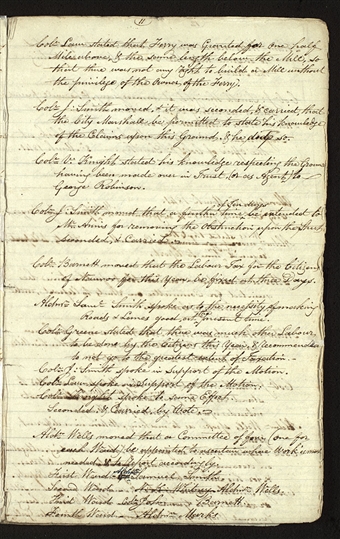 11
Colr. Law stated that Ferry was Granted for one half
Mile above, & the same length below the Mill, so
that there was not any right to build a Mill without
the privilege of the Owner of the Ferry.
Colr. J. Smith moved, & it was seconded, & carried, that
the City Marshall be permitted to state his knowledge
of the Claims upon this Ground. & he does so.
Colr. V. Knight stated his knowledge respecting the Ground
having been made over in Trust, for as Agent, to
George Robinson.
of Ten days
Colr. J. Smith moved that a further time be extended to
Mr. Annis for removing the Obstruction upon the Street
Seconded, & Carried.
Colr. Barnett moved that the Labour Tax for the Citizens
of Nauvoo for this Year, be fixed at three Days.
Aldrn. Saml. Smith spoke as to the necessity of making
Roads & Lanes good, at the present time.
Colr. Greene stated that there was much other Labour
to be done by the Citizens this Year, & recommended
to not go to the greatest extent of Taxation.
Colr. J. Smith spoke in Support of the Motion.
Colr. Law spoke in Support of the Motion.
Colr. Knight spoke to same Effect.
Seconded & Carried by Vote.
Aldr. Wells moved that a Committee of four (one for
each Ward) be appointed to ascertain where Work is most
needed, & to report accordingly.
First Ward Samuel Smith
Second Ward Aldrn. Wells.
Third Ward Barnett
Fourth Ward Aldrn. Marks.